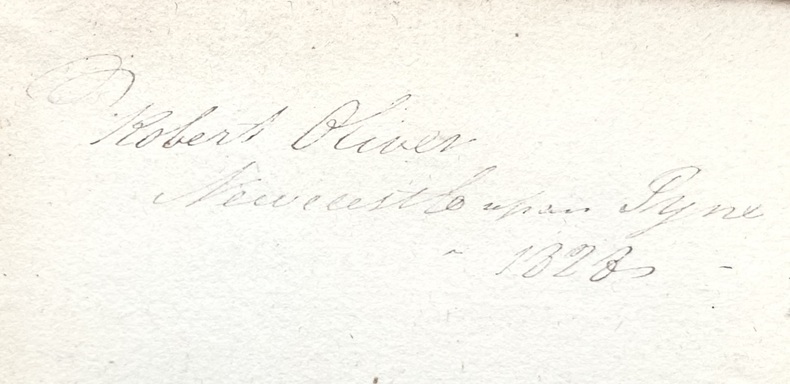 Robert Oliver
Newcastle upon Tyne
1828